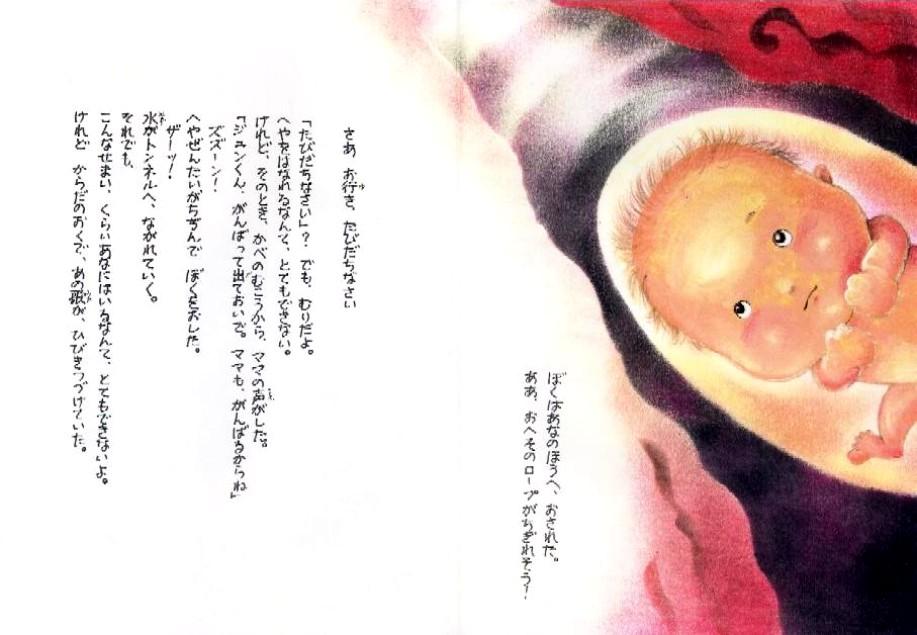 ぼくはあなのほうへ、おされた。
ああ、おへそのロープがちぎれそう!
さあ お行き、たびだちなさい
「たびだちなさい」? でも、むりだよ。
へやをはなれるなんて、とてもできない。
けれど、そのとき、かべのむこうから、ママの声がした。
「ジュンくん、がんばって出ておいで。ママも、がんばるからね」
ズズーン!
へやぜんたいがちぢんで ぼくをおした。
ザーッ!
水がトンネルへ、ながれていく。
それでも、
こんなせまい、くらいあなにはいるなんて、とてもできないよ。
けれど からだのおくで、あの歌が、ひびきつづけていた。